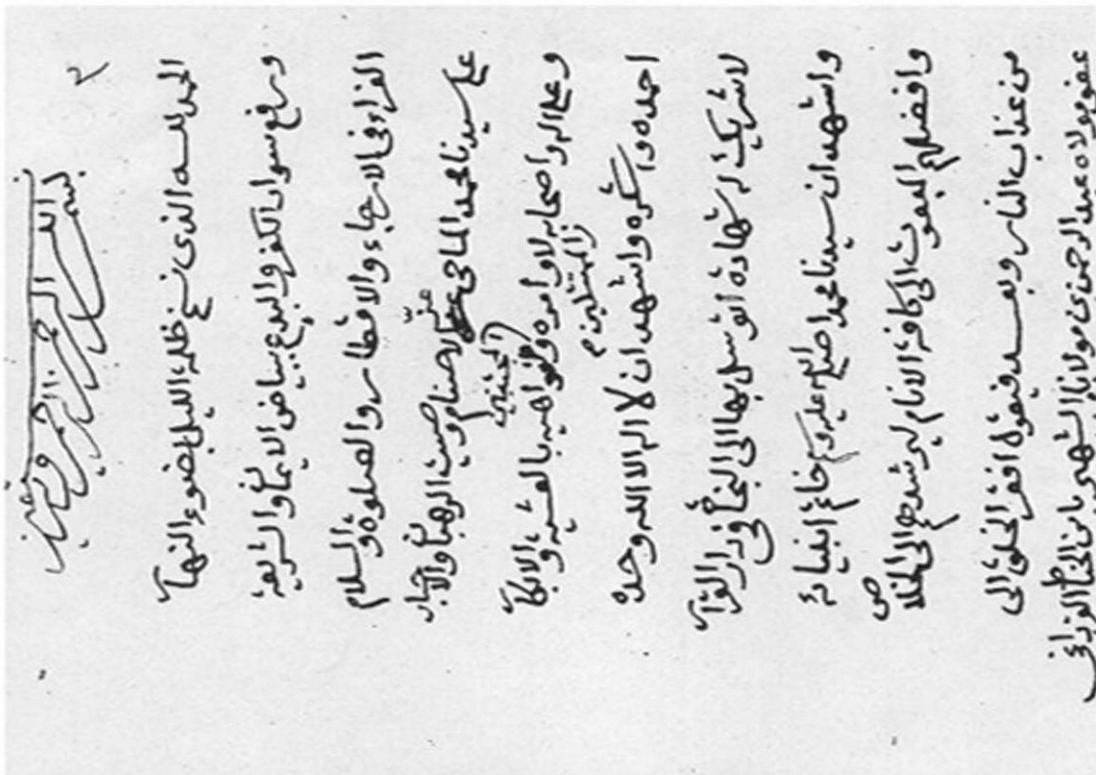 ٢
بسم الله الرحمن الرحيم وبه
الحمد لله الذى نسخ ظلمة الليل بضوء النهار
ورفع سواد الكفر والبدع ببياض الايمان والشريعة
الغراء فى الارجاء والاقطار والصلوة والسلام
على سيدنا محمد الماحى عبادة الاصنام وصيت الرهبان والاحبار
وعلى اله واصحابه لاوامره ونواهيه بالعشية والابكار
الممتثلين
المجتنبين
احمده واشكره واشهد ان لا اله الا الله وحده
لا شريك له شهادة اتوسل بها الى النجاة فى دار القرار
واشهد ان سيدنا محمدا صلى الله عليه وسلم خاتم انبيائه
وافضلهم المبعوث الى كافة الانام ليرشدهم الى الخلاص
من عذاب النار وبعد فيقول افقر الخلق الى
عفو مولاه عبد الرحمن بن مولانا الشهير بابن